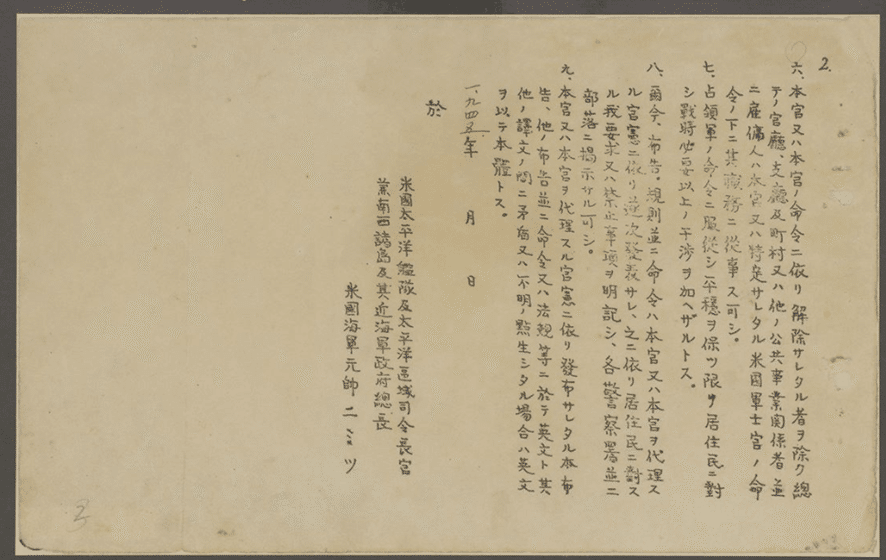 2.
六、本官又ハ本官ノ命令ニ依リ解除サレタル者ヲ除ク總
テノ官廳、支廳及町村又ハ他ノ公共事業関係者並
ニ雇傭人ハ本官又ハ特定サレタル米國軍士官ノ命
令ノ下ニ其職務ニ從事ス可シ。
七、占領軍ノ命令ニ服從シ平穏ヲ保ツ限リ居住民ニ對
シ戰時必要以上ノ干渉ヲ加ヘザルトス。
八、爾今、布告、規則並ニ命令ハ本官又ハ本官ヲ代理ス
ル官憲ニ依リ逐次發表サレ、之ニ依リ居住民ニ對ス
ル我要求又ハ禁止事項ヲ明記シ、各警察署並ニ
部落ニ掲示サル可シ。
九、本官又ハ本官ヲ代理スル官憲ニ依リ發布サレタル本布
告、他ノ布告並ニ命令又ハ法規等ニ於テ英文ト其
他ノ譯文ノ間ニ矛盾又ハ不明ノ點生シタル場合ハ英文
ヲ以テ本體トス。
一九四五年 月 日
於
米國太平洋艦隊及太平洋區域司令長官
兼南西諸島及其近海軍政府總長
米國海軍元帥 ニミツ
3